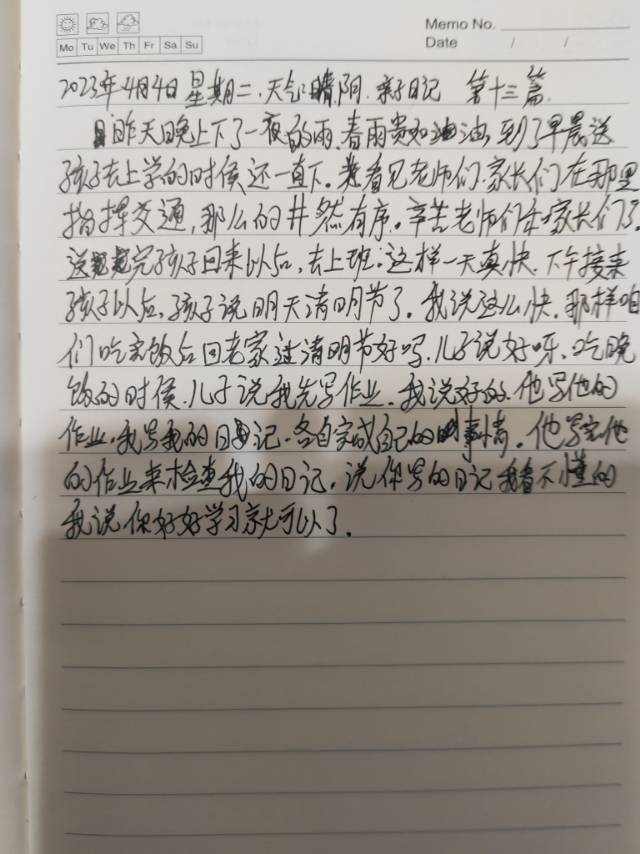 Memo No.
Mo Tu We Th Fr Sa Su
Date / /
2023年4月4日 星期二.天气:晴阴.亲子日记 第十三篇.
昨天晚上下了一夜的雨.春雨贵如油油,到了早晨送
孩子去上学的时候还一直下。我看见老师们.家长们在那里
指挥交通,那么的井然有序。辛苦老师们和家长们了.
送完孩子回来以后,去上班.这样一天真快.下午接来
孩子以后,孩子说明天清明节了。我说这么快.那样咱
们吃完饭后回老家过清明节好吗.儿子说好呀.吃晚
饭的时候.儿子说我先写作业.我说好的.他写他的
作业.我写我的日记.各自完成自己的事情。他写完他
的作业来检查我的日记.说你写的日记我看不懂的
我说你好好学习就可以了.